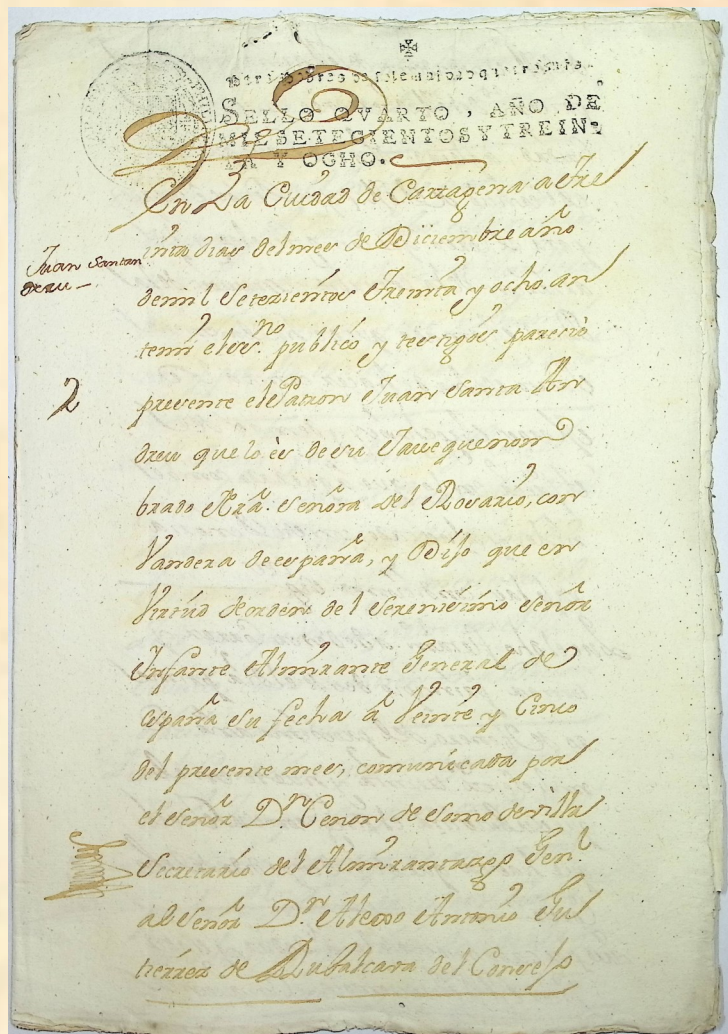 SELLO QVARTO, AÑO DE
MIL SETECIENTOS Y TREIN-
TA Y OCHO.
En La Ciudad de Cartagena a tre
inta dias del mes de Diciembre año
Juan Santan
dreu
demil setezientos treinta y ocho, an
temi el ess.no publico y testigos parecio
2
presente el Patron Juan Santa An
dreu que lo es de su Javeque nom
brado Nrã. señora del Rosario, con
Vandera de españa, y Dijo que en
Virtud de orden del serenisimo señor
Infante Almirante General de
españa su fecha a Veinte y Cinco
del presente mes, comunicada por
el señor Dn. Cenon de Somo de villa
Secretario del Almirantazgo Genl.
al señor Dn. Alexo Antonio Gu
tierrez de Rubalcava del Consejo